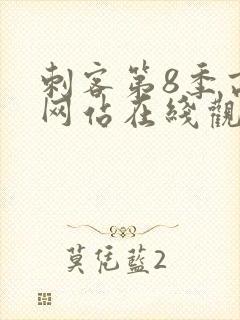 刺客第8季百
网佔在綫觀
莫凭藍2